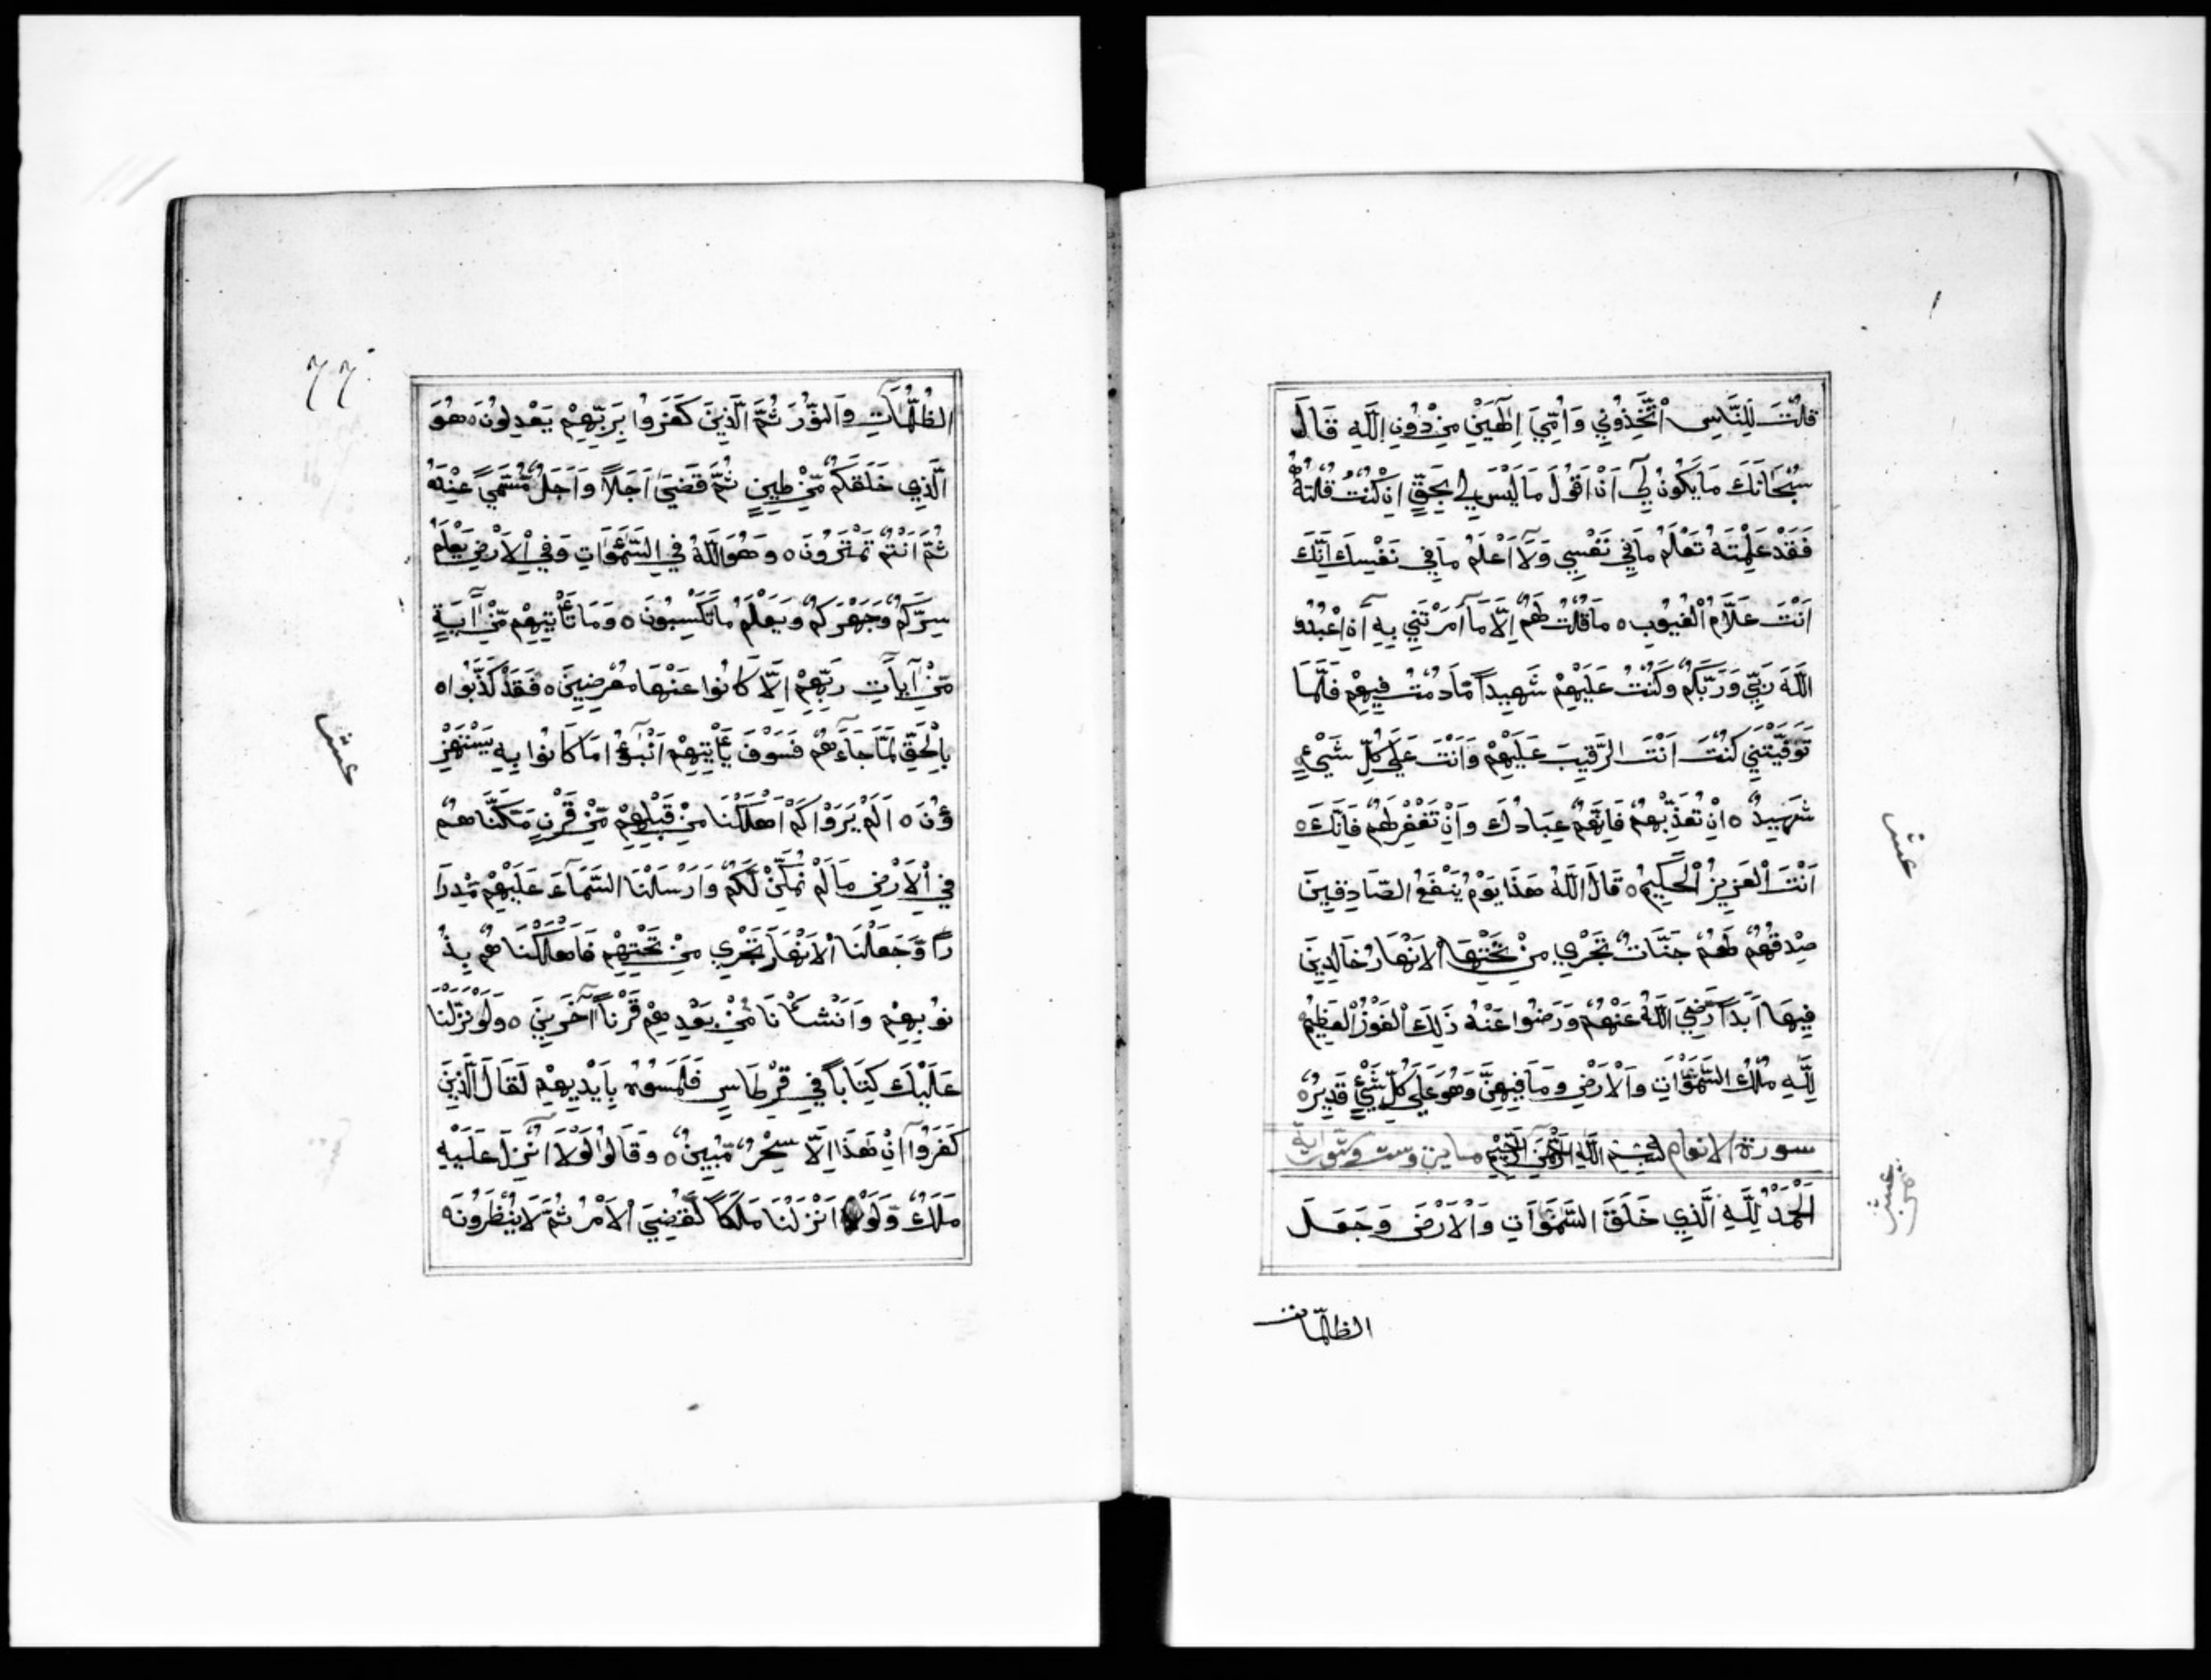 قُلْتَ لِلنَّاسِ اتَّخِذُونِي وَاُمِّيَ اِلٰهَيْنِ مِنْ دُونِ اللّٰهِ قَالَ
سُبْحَانَكَ مَا يَكُونُ لِيٓ اَنْ اَقُولَ مَا لَيْسَ لِي بِحَقٍّ اِنْ كُنْتُ قُلْتُهُ
فَقَدْ عَلِمْتَهُ تَعْلَمُ مَا فِي نَفْسِي وَلَآ اَعْلَمُ مَا فِي نَفْسِكَ اِنَّكَ
اَنْتَ عَلَّامُ الْغُيُوبِ ه مَا قُلْتُ لَهُمْ اِلَّا مَآ اَمَرْتَنِي بِهٓ اَنِ اعْبُدُوا
اللّٰهَ رَبِّي وَرَبَّكُمْ وَكُنْتُ عَلَيْهِمْ شَهِيداً مَّا دُمْتُ فِيهِمْ فَلَمَّا
تَوَفَّيْتَنِي كُنْتَ اَنْتَ الرَّقِيبَ عَلَيْهِمْ وَاَنْتَ عَلَى كُلِّ شَيْءٍ
شَهِيدٌ ه اِنْ تُعَذِّبْهُمْ فَاِنَّهُمْ عِبَادُكَ وَاِنْ تَغْفِرْ لَهُمْ فَاِنَّكَ ه
اَنْتَ الْعَزِيزُ الْحَكِيمُ ه قَالَ اللّٰهُ هَذَا يَوْمُ يَنْفَعُ الصَّادِقِينَ
صِدْقُهُمْ لَهُمْ جَنَّاتٌ تَجْرِي مِنْ تَحْتِهَا الْاَنْهَارُ خَالِدِينَ
فِيهَآ اَبَداً رَّضِيَ اللّٰهُ عَنْهُمْ وَرَضُوا عَنْهُ ذَلِكَ الْفَوْزُ الْعَظِيمُ ه
لِلّٰهِ مُلْكُ السَّمٰوَاتِ وَالْاَرْضِ وَمَا فِيهِنَّ وَهُوَ عَلَى كُلِّ شَيْءٍ قَدِيرٌ ه
سورة الانعام بِسْمِ اللّٰهِ الرَّحْمٰنِ الرَّحِيمِ
اَلْحَمْدُ لِلّٰهِ الَّذِي خَلَقَ السَّمٰوَاتِ وَالْاَرْضَ وَجَعَلَ
الظلمات
عشر
عشر
٦٦
الظُّلُمَاتِ وَالنُّورَ ثُمَّ الَّذِينَ كَفَرُوا بِرَبِّهِمْ يَعْدِلُونَ ه هُوَ
الَّذِي خَلَقَكُمْ مِّنْ طِينٍ ثُمَّ قَضَىٓ اَجَلاً وَاَجَلٌ مُّسَمًّى عِنْدَهُ
ثُمَّ اَنْتُمْ تَمْتَرُونَ ه وَهُوَ اللّٰهُ فِي السَّمٰوَاتِ وَفِي الْاَرْضِ يَعْلَمُ
سِرَّكُمْ وَجَهْرَكُمْ وَيَعْلَمُ مَا تَكْسِبُونَ ه وَمَا تَأْتِيهِمْ مِّنْ آيَةٍ
مِّنْ آيَاتِ رَبِّهِمْ اِلَّا كَانُوا عَنْهَا مُعْرِضِينَ ه فَقَدْ كَذَّبُوا ه
بِالْحَقِّ لَمَّا جَآءَهُمْ فَسَوْفَ يَأْتِيهِمْ اَنْبٰٓؤُا مَا كَانُوا بِهِ يَسْتَهْزِ
ؤُنَ ه اَلَمْ يَرَوْا كَمْ اَهْلَكْنَا مِنْ قَبْلِهِمْ مِّنْ قَرْنٍ مَّكَّنَّاهُمْ
فِي الْاَرْضِ مَا لَمْ نُمَكِّنْ لَّكُمْ وَاَرْسَلْنَا السَّمَآءَ عَلَيْهِمْ مِّدْرَا
راً وَّجَعَلْنَا الْاَنْهَارَ تَجْرِي مِنْ تَحْتِهِمْ فَاَهْلَكْنَاهُمْ بِذُ
نُوبِهِمْ وَاَنْشَأْنَا مِنْ بَعْدِهِمْ قَرْناً آخَرِينَ ه وَلَوْ نَزَّلْنَا
عَلَيْكَ كِتَاباً فِي قِرْطَاسٍ فَلَمَسُوهُ بِاَيْدِيهِمْ لَقَالَ الَّذِينَ
كَفَرُوآ اِنْ هَذَآ اِلَّا سِحْرٌ مُّبِينٌ ه وَقَالُوا لَوْلَآ اُنْزِلَ عَلَيْهِ
مَلَكٌ وَّلَوْ اَنْزَلْنَا مَلَكاً لَّقُضِيَ الْاَمْرُ ثُمَّ لَا يُنْظَرُونَ ه
عشر